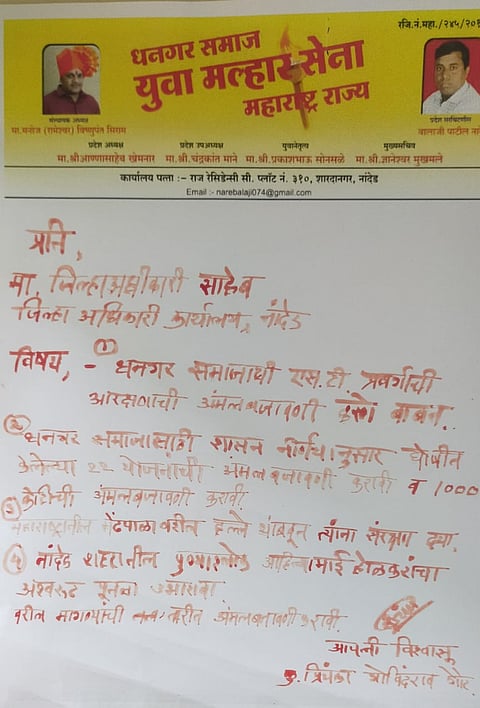 रजि.नं.महा./२४५/२०१
धनगर समाज
युवा मल्हार सेना
महाराष्ट्र राज्य
संस्थापक अध्यक्ष
मा.मनोज (रामेश्वर) विष्णुपंत सिराम
प्रदेश सरचिटणीस
बालाजी पाटील नारे
प्रदेश अध्यक्ष प्रदेश उपअध्यक्ष युवानेतृत्व मुख्यसचिव
मा.श्री.आण्णासाहेब खेमनार मा.श्री.चंद्रकांत माने मा.श्री.प्रकाशभाऊ सोनसळे मा.श्री.ज्ञानेश्वर मुखमले
कार्यालय पत्ता :- राज रेसिडेन्सी सी. प्लॉट नं. ३१०, शारदानगर, नांदेड
Email :- narebalaji074@gmail.com
प्रति,
मा. जिल्हाअधीकारी साहेब
जिल्हा अधिकारी कार्यालय, नांदेड
विषय, - ① धनगर समाजाची एस.टी. प्रवर्गाची
आरक्षणाची अंमलबजावणी करणे बाबत.
② धनगर समाजासाठी शासन निर्णयानुसार घोषीत
केलेल्या २२ योजनांची अंमलबजावणी करावी व 1000
कोटींची अंमलबजावणी करावी.
③ महाराष्ट्रातील मेंढपाळावरील हल्ले थांबवून त्यांना संरक्षण द्या.
④ नांदेड शहरातील पुण्यश्लोक अहिल्यामाई होळकरांचा
अश्वरुढ पुतळा उभारावा
वरील मागण्यांची त्वरीत अंमलबजावणी करावी.
आपली विश्वासू
कु. प्रियंका गोविंदराव गोरे.